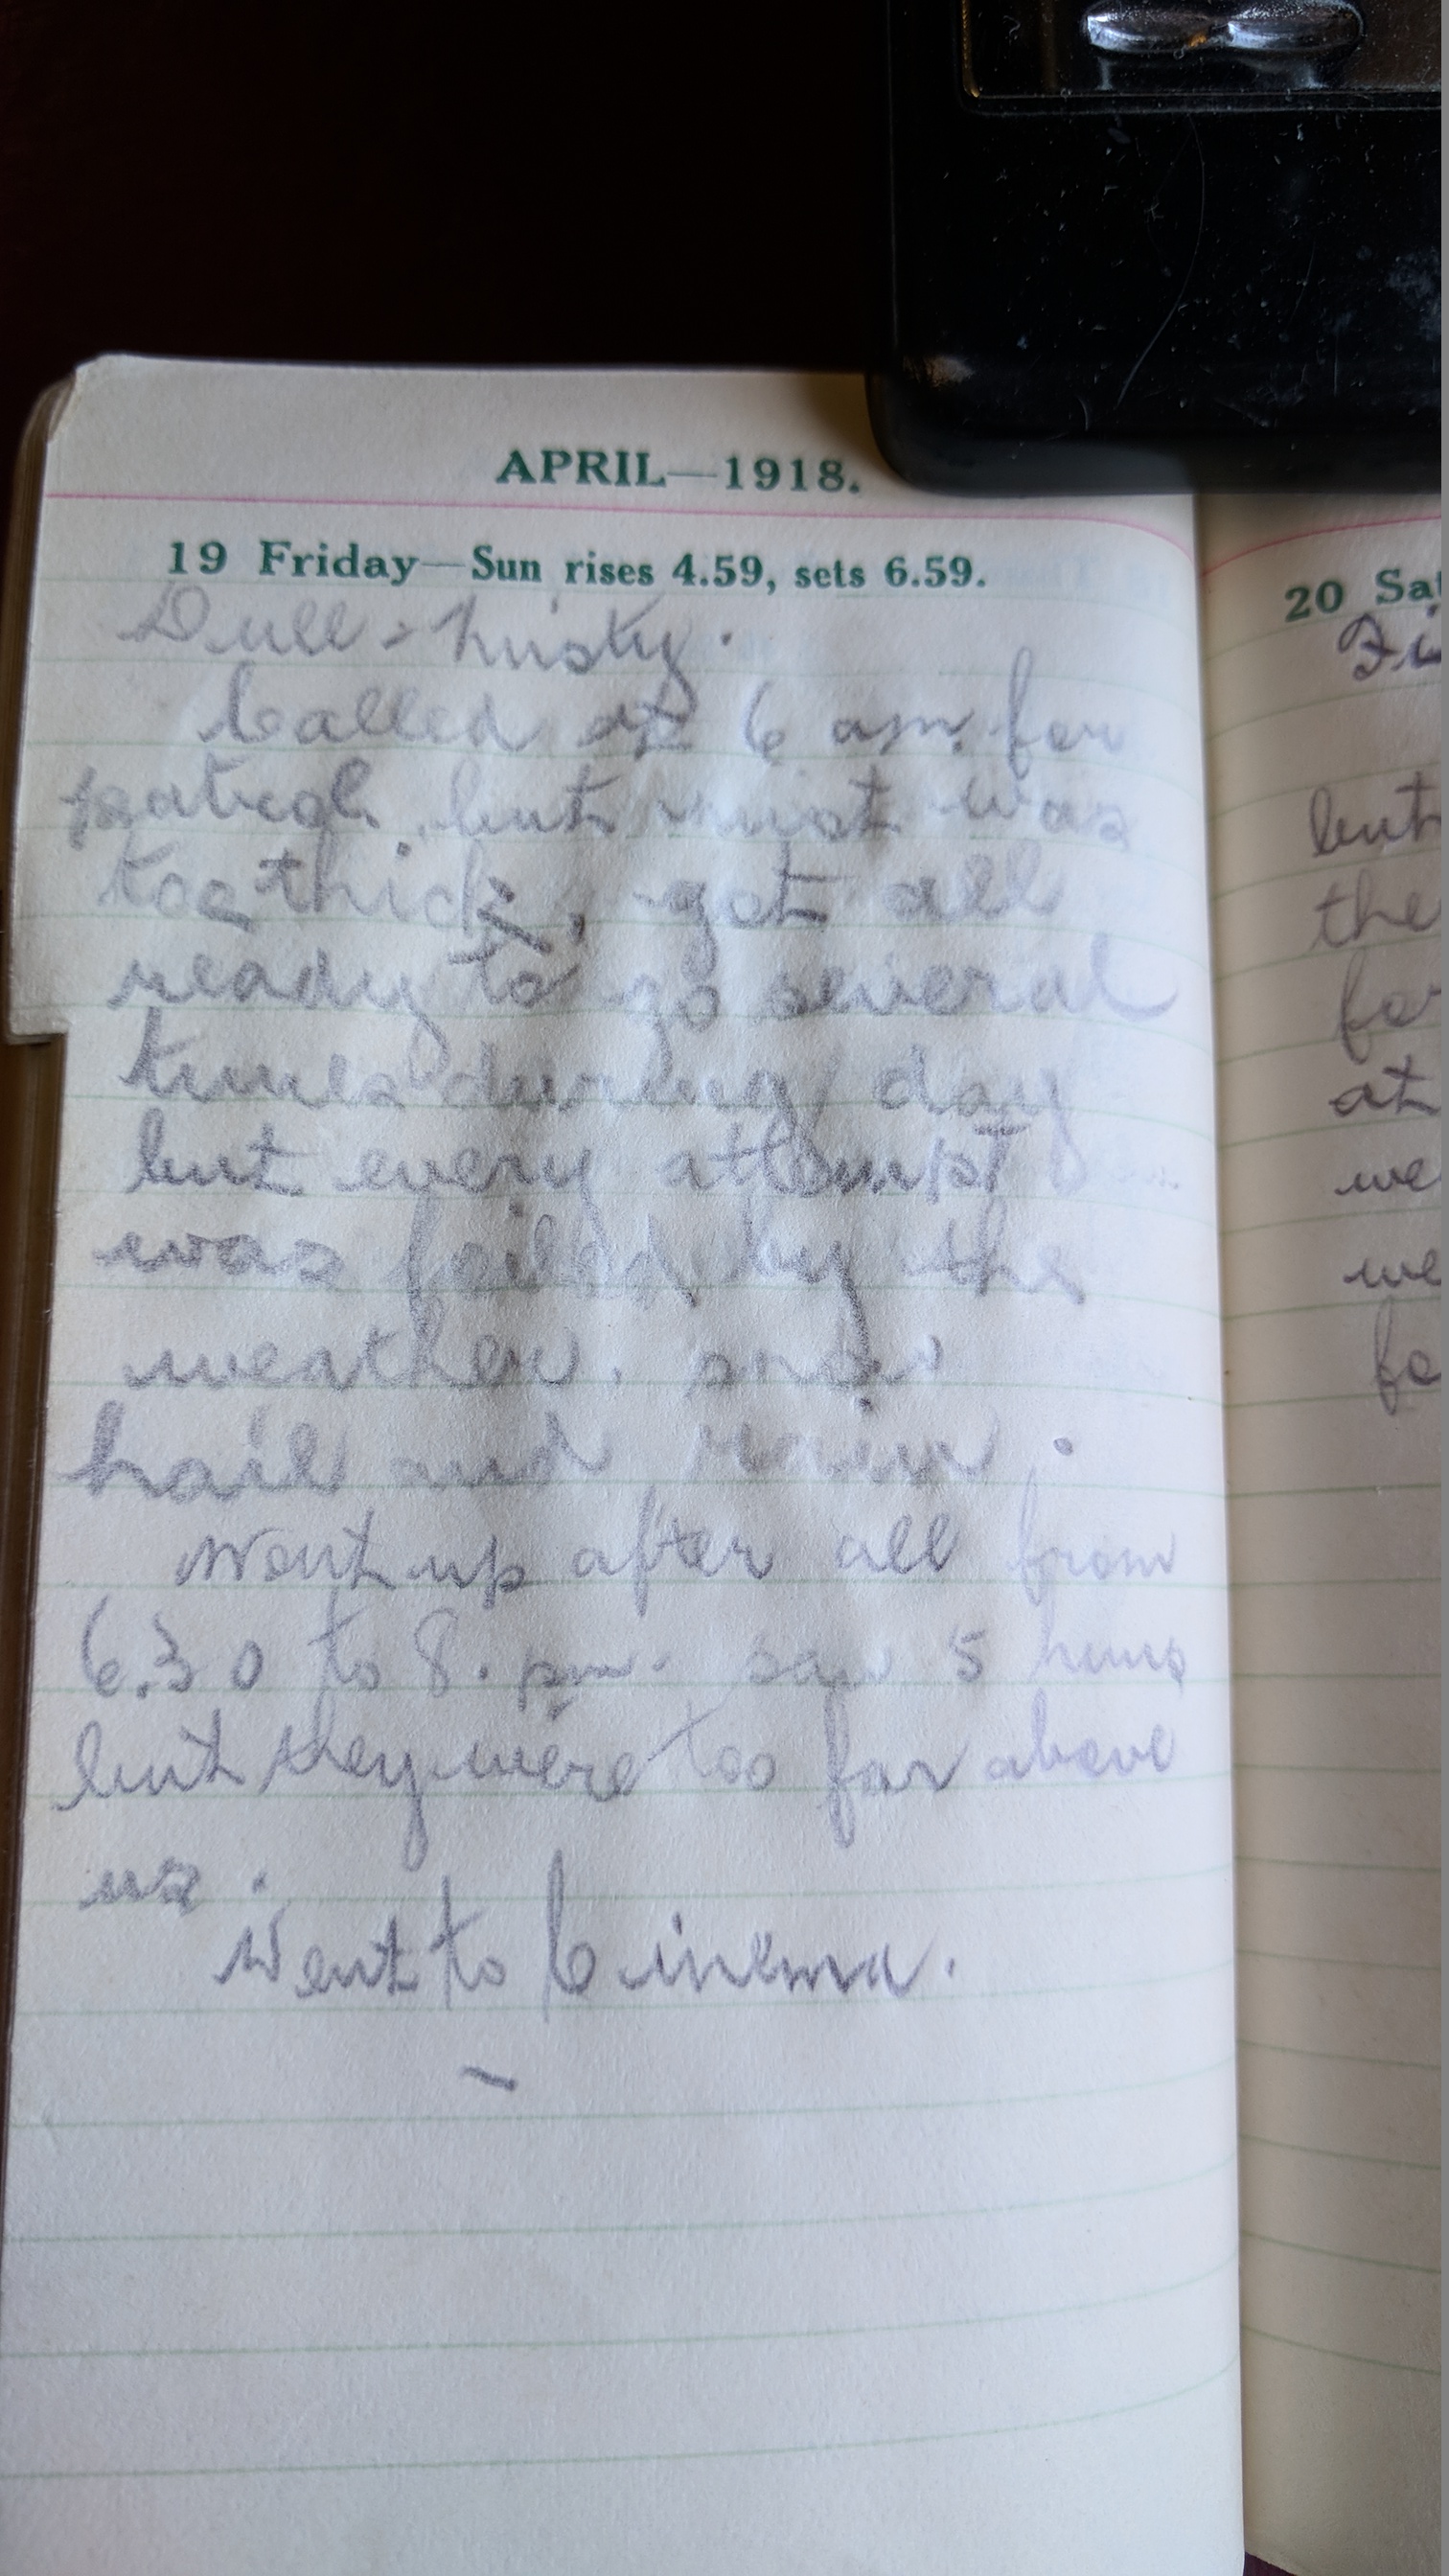 APRIL—1918.
19 Friday—Sun rises 4.59, sets 6.59.
Dull - misty.
Called at 6 am. for
patrol, but mist was
too thick, got all
ready to go several
times during day
but every attempt
was foiled by the
weather. snow
hail and rain.
Went up after all from
6.30 to 8. pm. saw 5 huns
but they were too far above
us.
Went to Cinema.
20 Sat
but
the
for
at
we
we